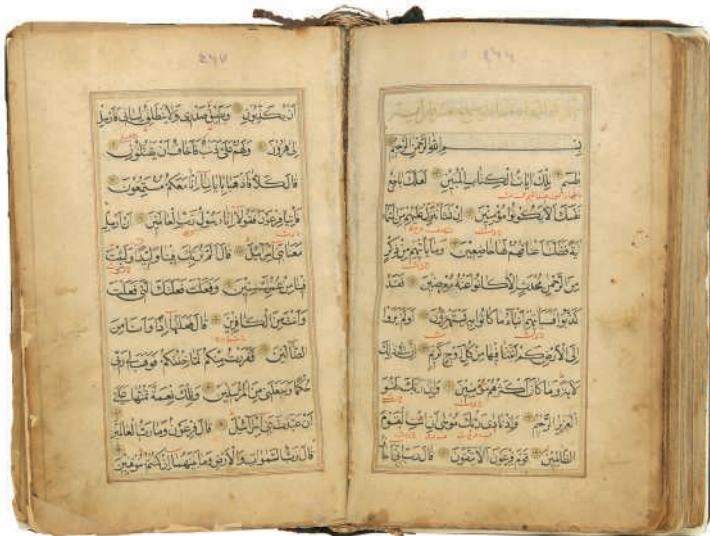 بسم الله الرحمن الرحيم
طسم تلك ايات الكتاب المبين لعلك باخع
نفسك الا يكونوا مؤمنين ان نشأ ننزل عليهم من السماء
اية فظلت اعناقهم لها خاضعين وما ياتيهم من ذكر
من الرحمن محدث الا كانوا عنه معرضين فقد
كذبوا فسياتيهم انباء ما كانوا به يستهزؤن اولم يروا
الى الارض كم انبتنا فيها من كل زوج كريم ان في ذلك
لاية وما كان اكثرهم مؤمنين وان ربك لهو
العزيز الرحيم واذ نادى ربك موسى ان ائت القوم
الظالمين قوم فرعون الا يتقون قال رب اني اخاف
ان يكذبون ويضيق صدري ولا ينطلق لساني فارسل
الى هرون ولهم علي ذنب فاخاف ان يقتلون
قال كلا فاذهبا باياتنا انا معكم مستمعون
فأتيا فرعون فقولا انا رسول رب العالمين ان ارسل
معنا بني اسرائيل قال الم نربك فينا وليدا ولبثت
فينا من عمرك سنين وفعلت فعلتك التي فعلت
وانت من الكافرين قال فعلتها اذا وانا من
الضالين ففررت منكم لما خفتكم فوهب لي ربي
حكما وجعلني من المرسلين وتلك نعمة تمنها علي
ان عبدت بني اسرائيل قال فرعون وما رب العالمين
قال رب السموات والارض وما بينهما ان كنتم موقنين